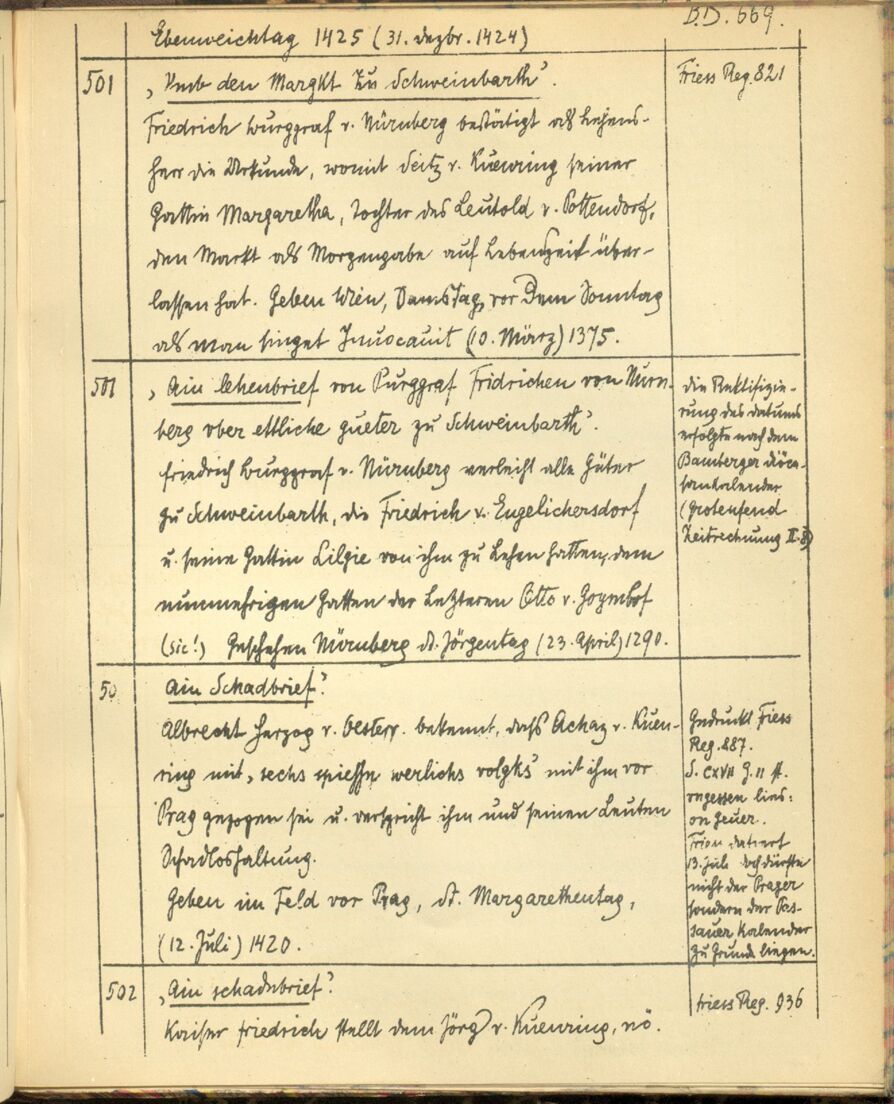 B.D. 669.
Ebenweichtag 1425 (31. dezbr. 1424)
501
„Umb den Margkt zu Schweinbarth".
Friess Reg. 821
Friedrich burggraf v. Nürnberg bestätigt als Lehens-
herr die Urkunde, womit Seitz v. Kuenring seiner
Gattin Margaretha, Tochter des Leutold v. Pottendorf,
den Markt als Morgengabe auf Lebenszeit über-
lassen hat. Geben Wien, Samstag vor dem Sonntag
als man singet Invocauit (10. März) 1375.
501
„Ain lehenbrief von Purggraf Fridrichen von Nurn-
berg vber ettliche gueter zu Schweinbarth".
friedrich burggraf v. Nürnberg verleiht alle Güter
zu Schweinbarth, die Friedrich v. Engelichersdorf
u. seine Gattin Lilgie von ihm zu Lehen hatten, dem
nunmehrigen Gatten der Letzteren Otto v. Goymhof
(sic!) Geschehen Nürnberg St. Jörgentag (23. April) 1290.
die Rektifizie-
rung des datums
erfolgte nach dem
Bamberger diöce-
sankalender
(Grotenfend
Zeitrechnung II.
50
Ain Schadbrief"
Albrecht Herzog v. Oesterr. bekennt, dass Achaz v. Kuen-
ring mit „sechs spiessen werlichs volgks" mit ihm vor
Prag gezogen sei u. verspricht ihm und seinen Leuten
Schadloshaltung.
Geben im Feld vor Prag, St. Margarethentag,
(12. Juli) 1420.
Gedruckt Friess
Reg. 887.
S. CXVII
datiert
13. Juli doch dürfte
nicht der Prager
sondern der Pas-
sauer Kalender
zu Grunde liegen.
502
„Ain schadnbrief"
friess Reg. 936
Kaiser friedrich stellt dem Jörg v. Kuenring, nö.